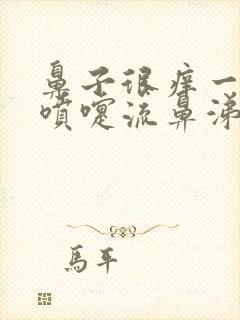 鼻子很痒一
喷嚏流鼻涕
馬平